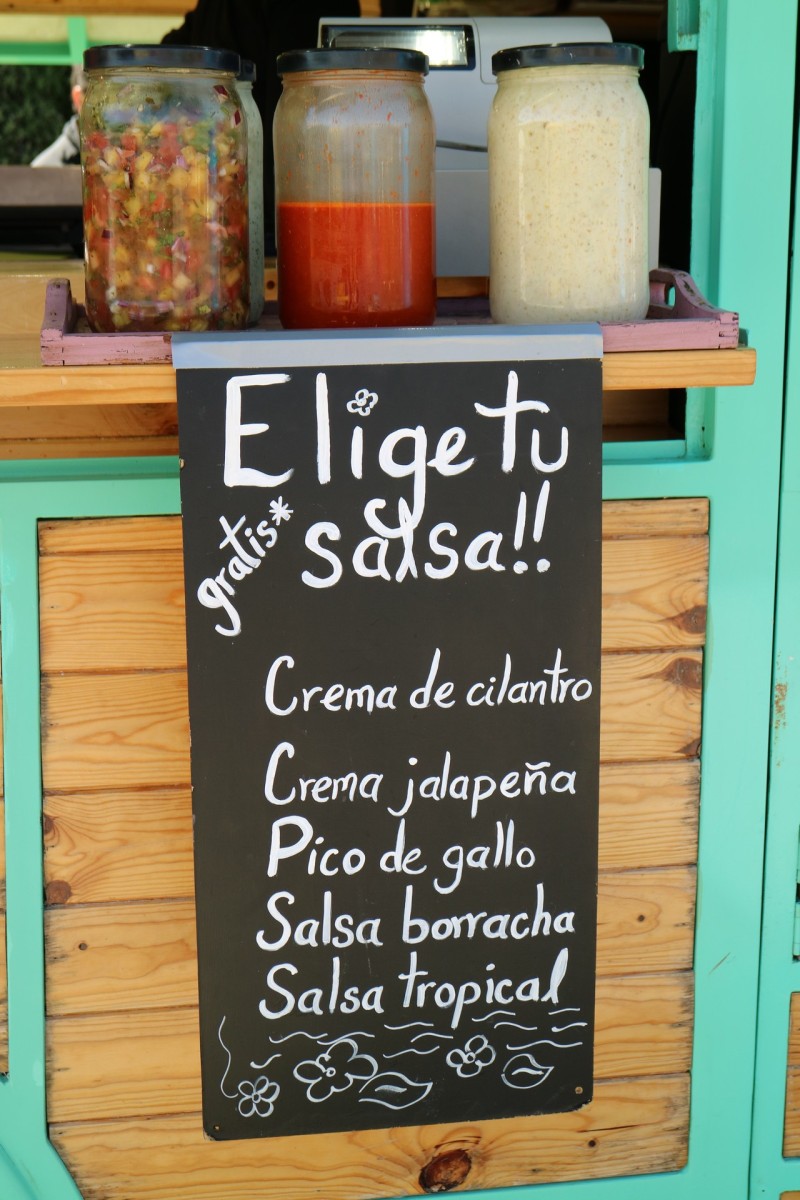 Elige tu
gratis*
salsa!!
Crema de cilantro
Crema jalapeña
Pico de gallo
Salsa borracha
Salsa tropical